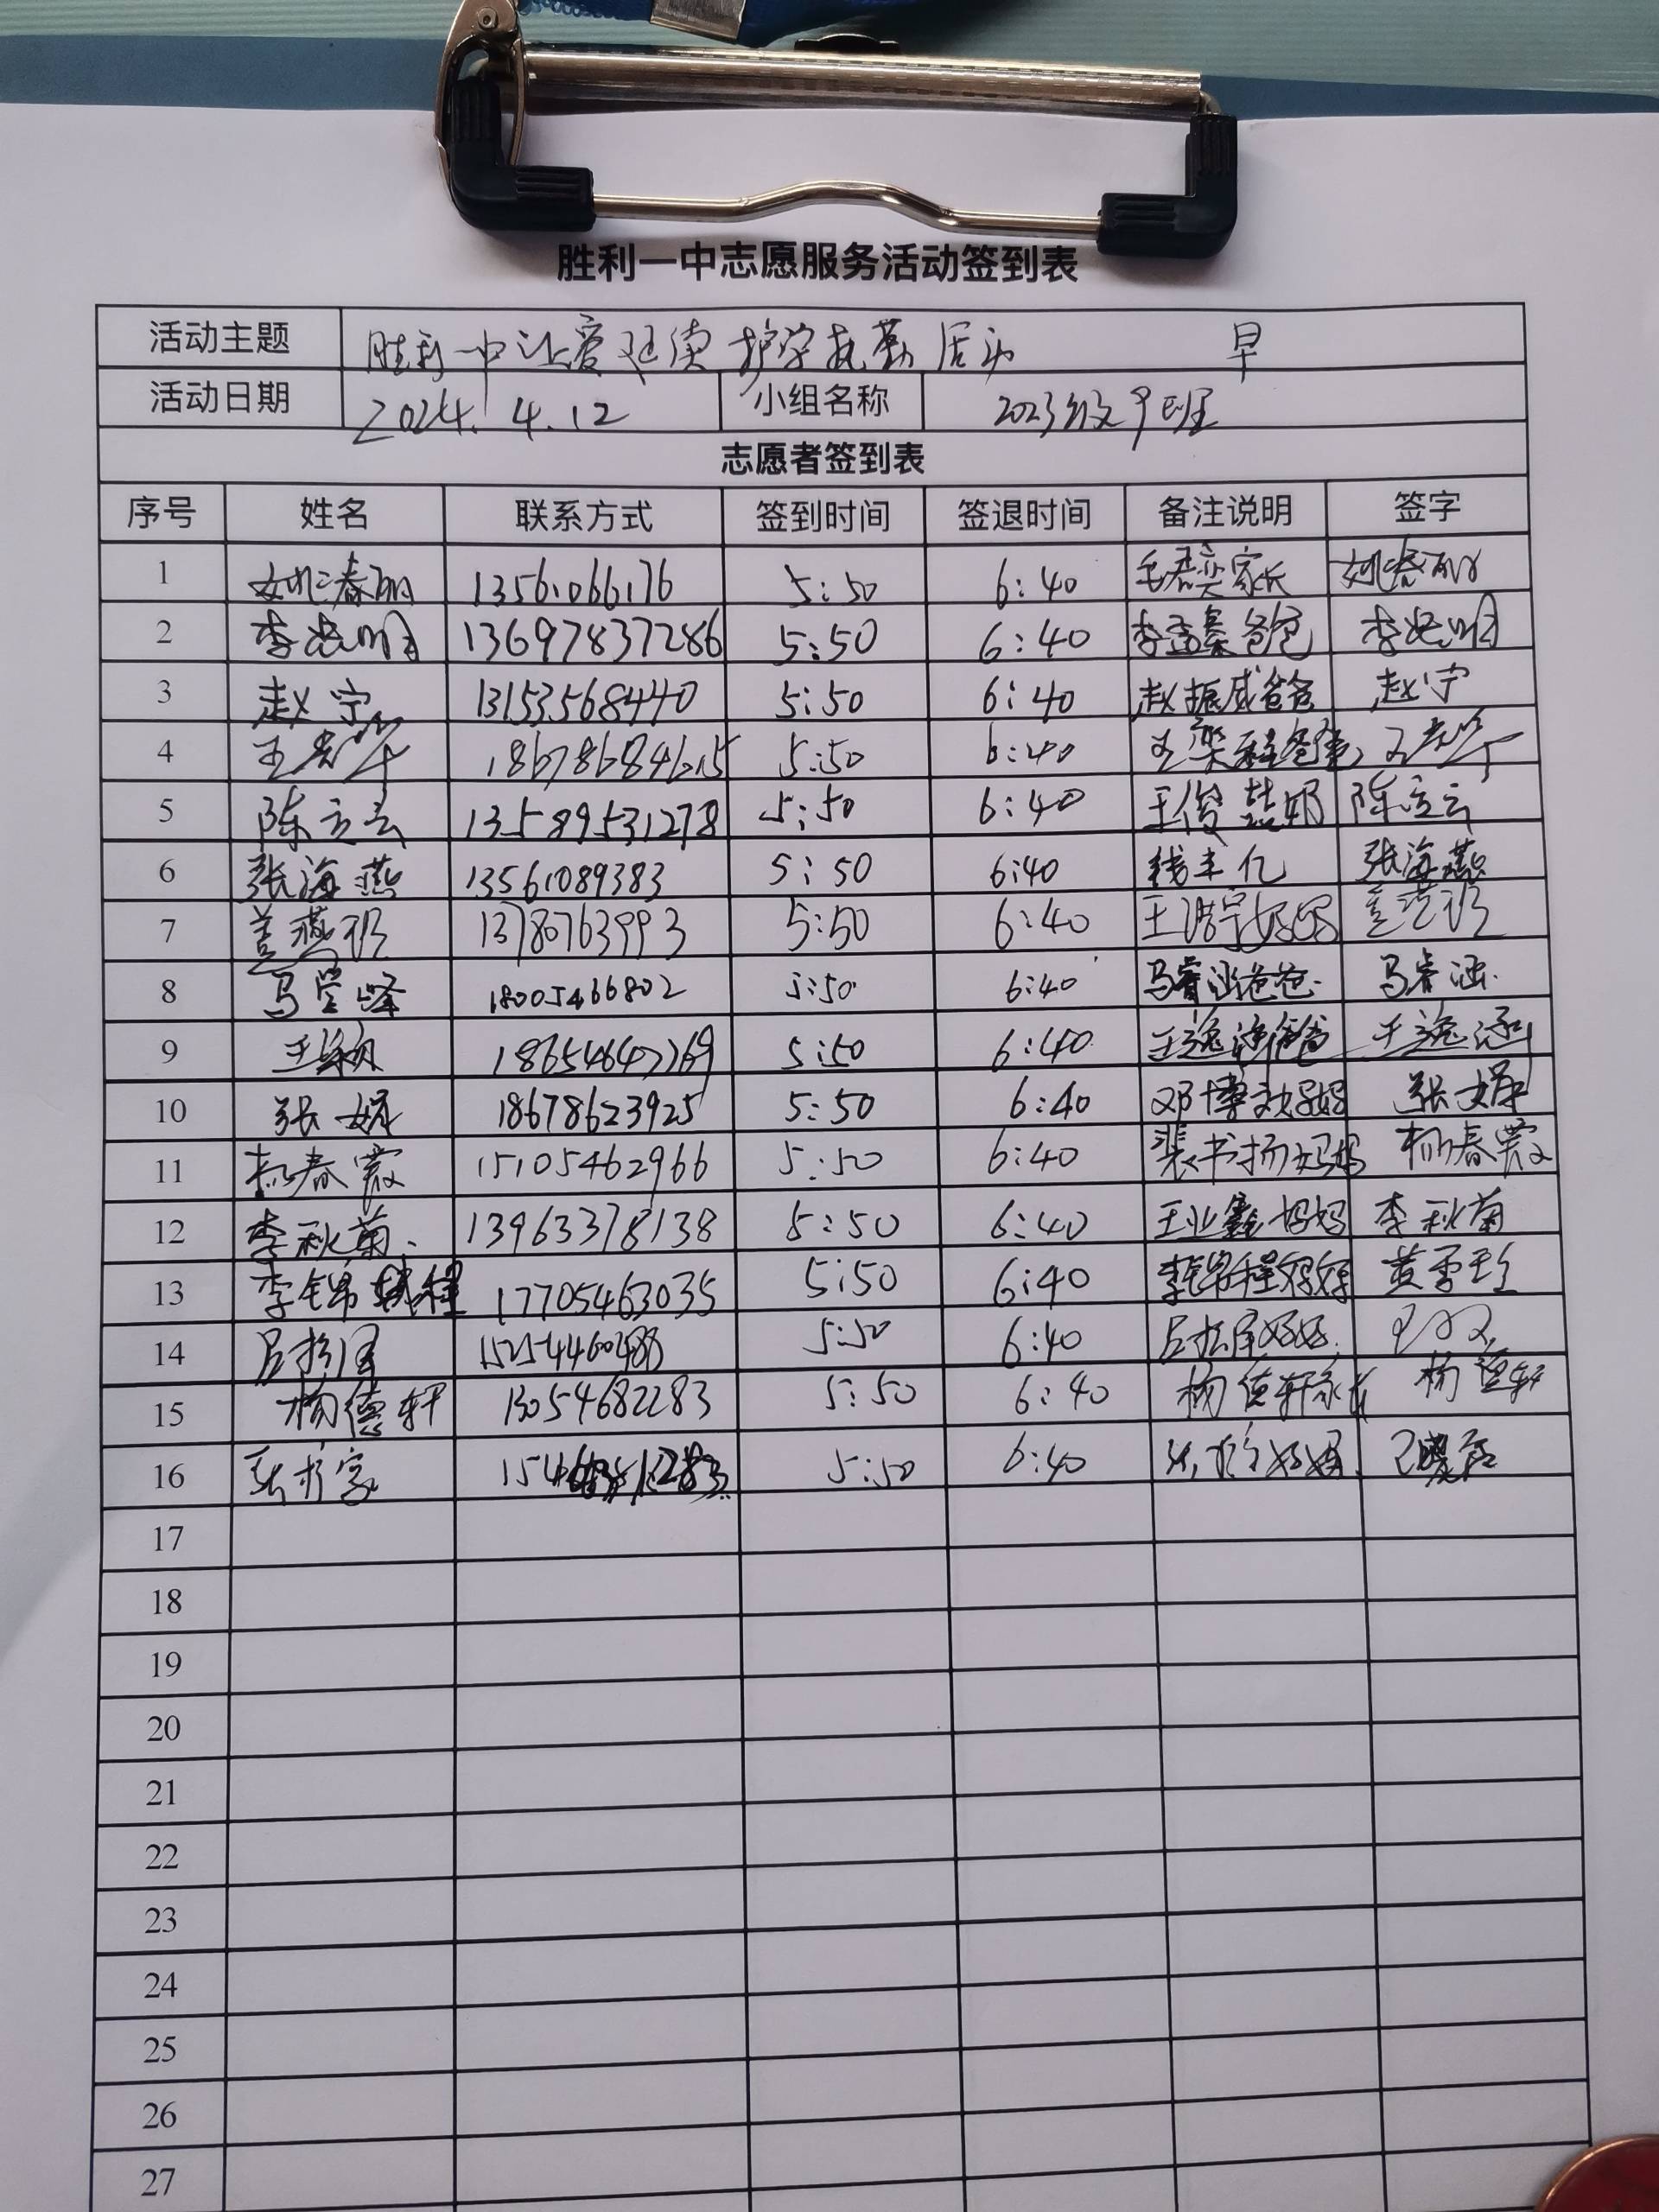 胜利一中志愿服务活动签到表
活动主题 胜利一中让爱延续护学执勤活动 早
活动日期 2024.4.12 小组名称 2023级9班
志愿者签到表
序号 姓名 联系方式 签到时间 签退时间 备注说明 签字
1 姚春丽 13561066176 5:50 6:40 毛君奕家长 姚春丽
2 李 明 13697837286 5:50 6:40 李孟 爸爸 李 明
3 赵宁 13153568440 5:50 6:40 赵振威爸爸 赵宁
4 王 华 18678684615 5:50 6:40 王 爸爸 王 华
5 陈立云 13589531278 5:50 6:40 王俊喆奶 陈立云
6 张海燕 13561089383 5:50 6:40 钱丰亿 张海燕
7 盖燕 13780763993 5:50 6:40 王浩宇妈妈 盖燕
8 马 峰 18005466802 5:50 6:40 马睿涵爸爸 马睿涵
9 王 18654647769 5:50 6:40 王逸涵爸爸 王逸涵
10 张婷 18678623925 5:50 6:40 邓博文妈妈 张婷
11 杨春霞 15105462966 5:50 6:40 裴书扬妈妈 杨春霞
12 李秋菊 13963378138 5:50 6:40 王业鑫妈妈 李秋菊
13 李锦程 17705463035 5:50 6:40 李锦程妈妈 黄雪
14 吕 5:50 6:40 吕 妈妈
15 杨德轩 13054682283 5:50 6:40 杨德轩家长 杨德轩
16 张 5:50 6:40 妈妈
17
18
19
20
21
22
23
24
25
26
27